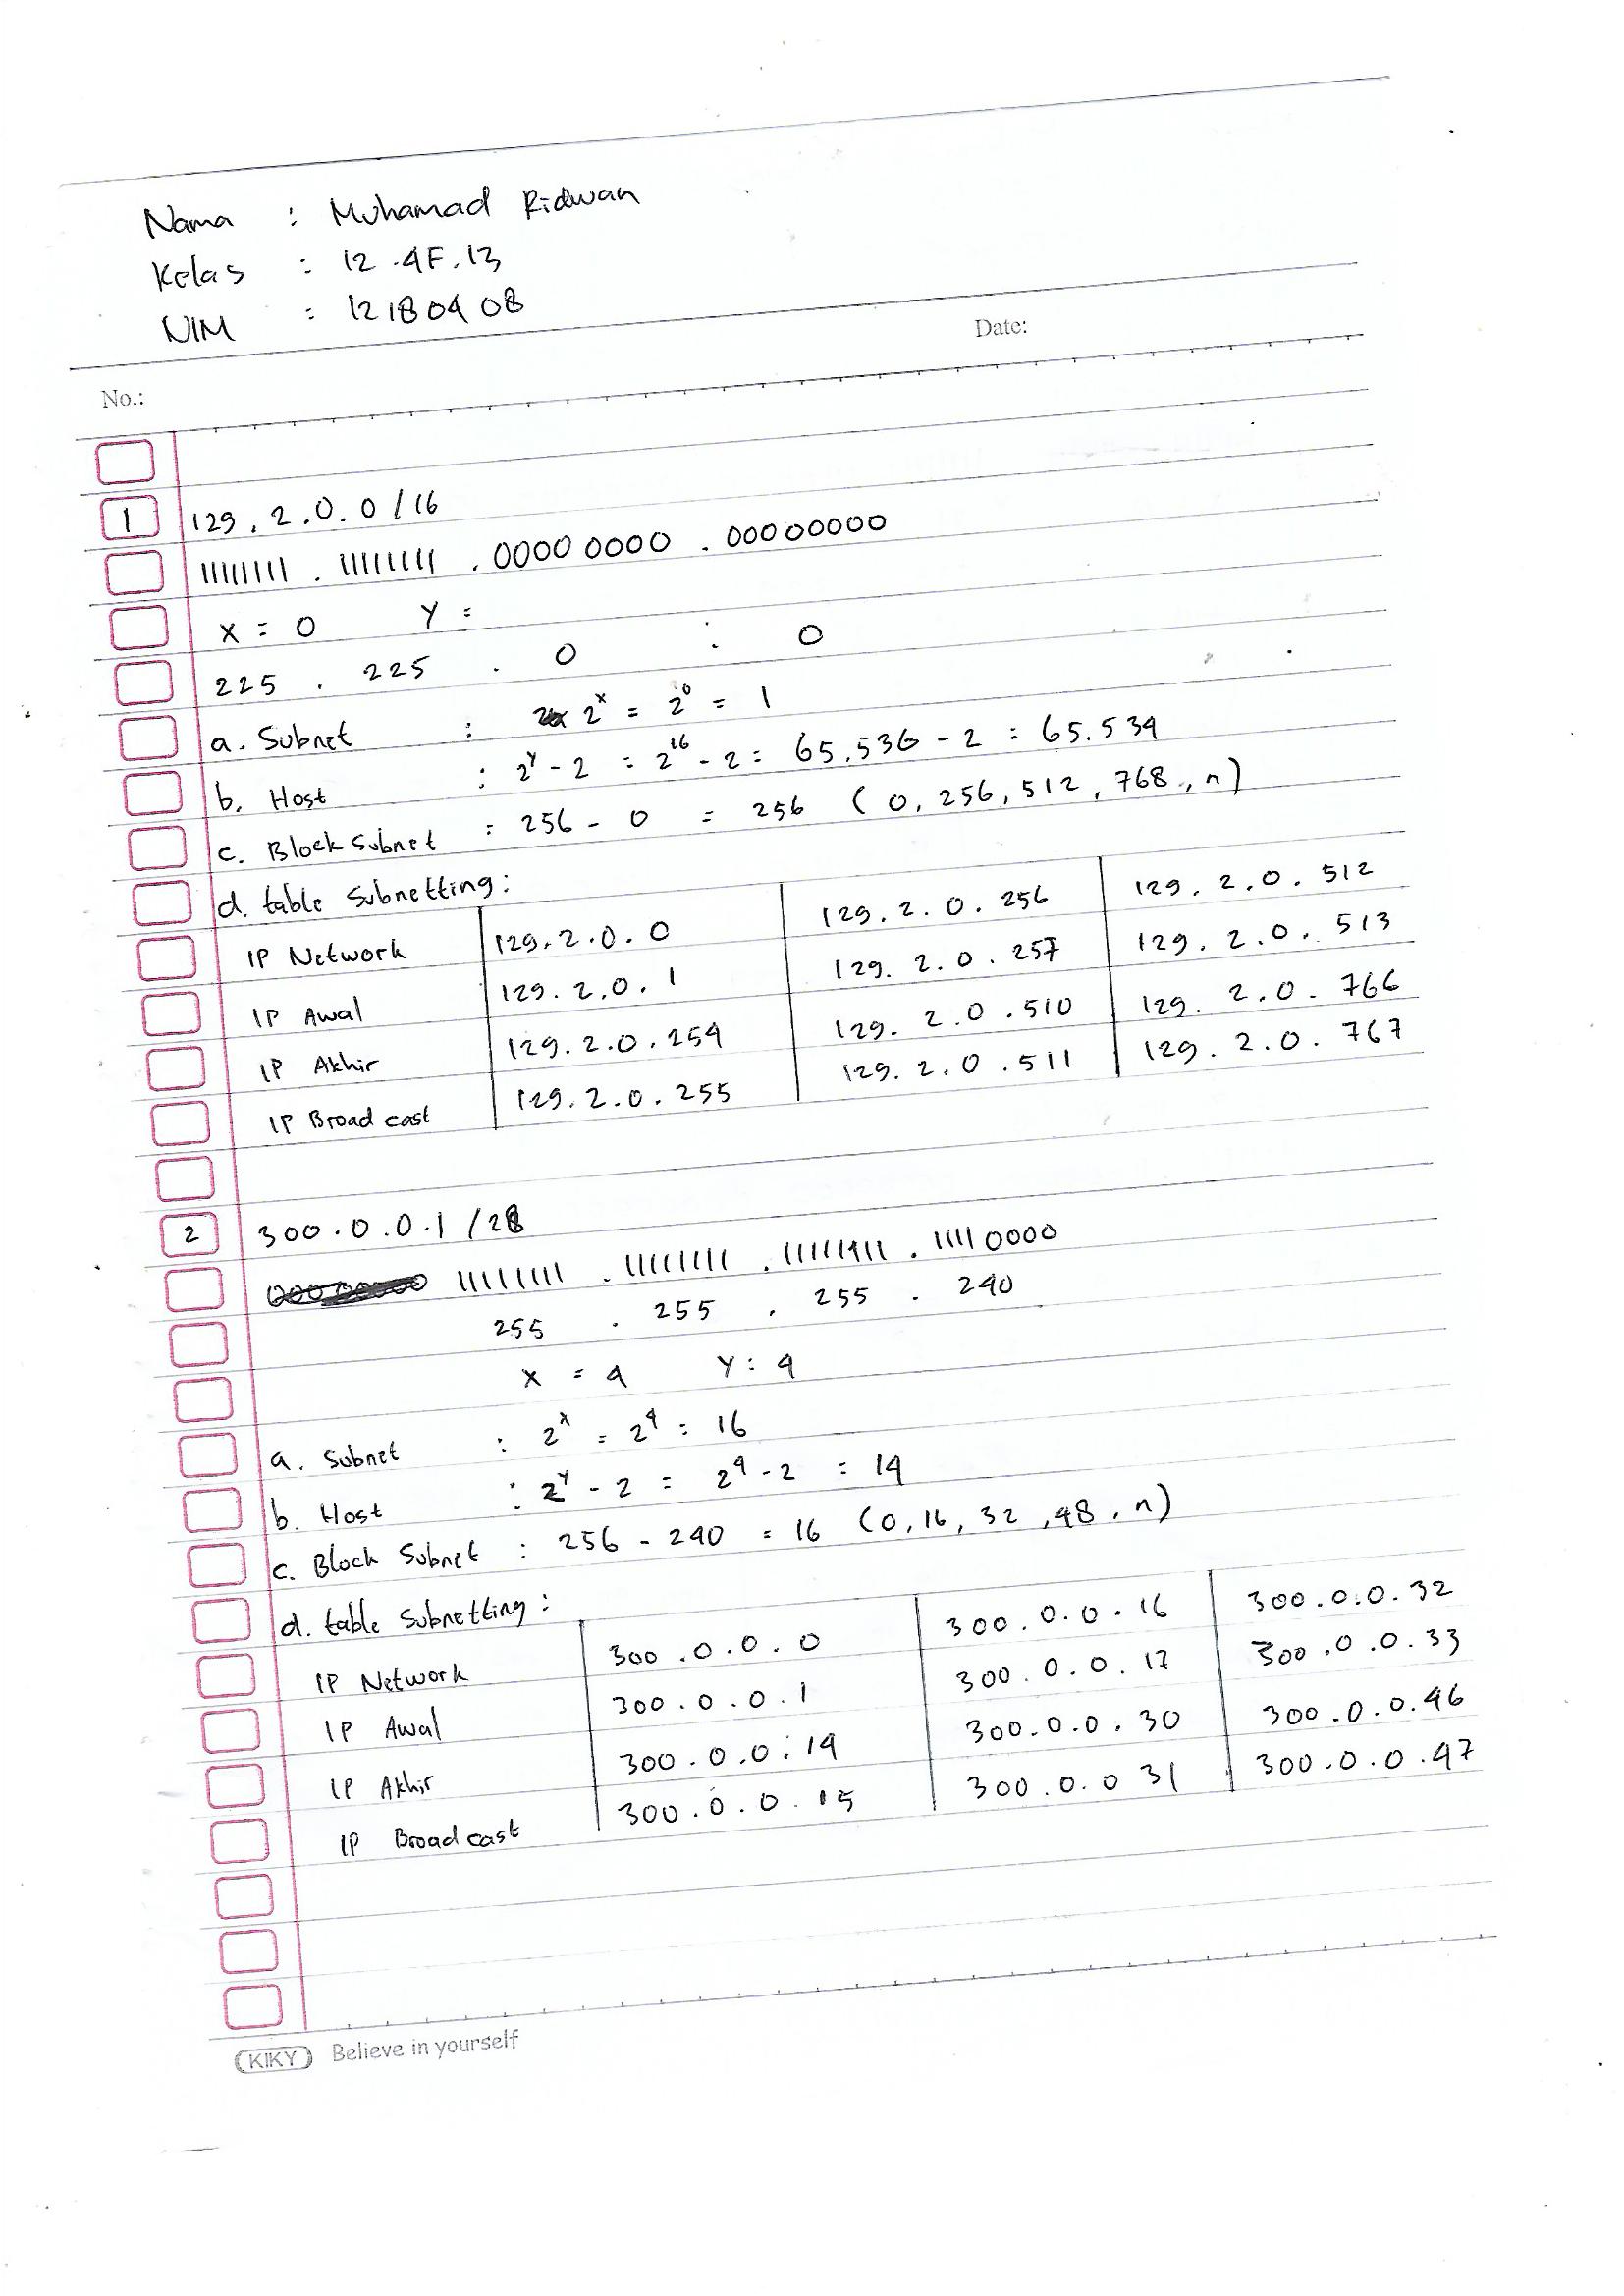 Nama : Muhamad Ridwan
Kelas : 12.4F.13
NIM : 12180408
Date:
No.:
1 129.2.0.0/16
11111111.11111111.00000000.00000000
X = 0 Y =
225 . 225 . 0 : 0
a. Subnet : 2ˣ = 2⁰ = 1
b. Host : 2ʸ - 2 = 2¹⁶ - 2 = 65.536 - 2 = 65.534
c. Block Subnet : 256 - 0 = 256 (0, 256, 512, 768, n)
d. table Subnetting :
IP Network 129.2.0.0 129.2.0.256 129.2.0.512
IP Awal 129.2.0.1 129.2.0.257 129.2.0.513
IP Akhir 129.2.0.254 129.2.0.510 129.2.0.766
IP Broadcast 129.2.0.255 129.2.0.511 129.2.0.767
2 300.0.0.1/28
11111111.11111111.11111111.11110000
255 . 255 . 255 . 240
X = 4 Y : 4
a. Subnet : 2ˣ = 2⁴ = 16
b. Host : 2ʸ - 2 = 2⁴ - 2 = 14
c. Block Subnet : 256 - 240 = 16 (0, 16, 32, 48, n)
d. table Subnetting :
IP Network 300.0.0.0 300.0.0.16 300.0.0.32
IP Awal 300.0.0.1 300.0.0.17 300.0.0.33
IP Akhir 300.0.0.14 300.0.0.30 300.0.0.46
IP Broadcast 300.0.0.15 300.0.0 31 300.0.0.47
KIKY Believe in yourself